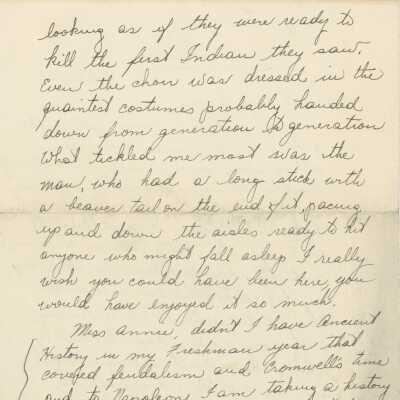 looking as if they were ready to
kill the first Indian they saw.
Even the choir was dressed in the
quaintest costumes probably handed
down from generation to generation
What tickled me most was the
man, who had a long stick with
a beaver tail on the end of it, pacing
up and down the aisles ready to hit
anyone who might fall asleep I really
wish you could have been here, you
would have enjoyed it so much.
Miss Annie, didn't I have Ancient
History in my Freshman year that
covered feudalism and Cromwell's time
and to Napoleon I am taking a history